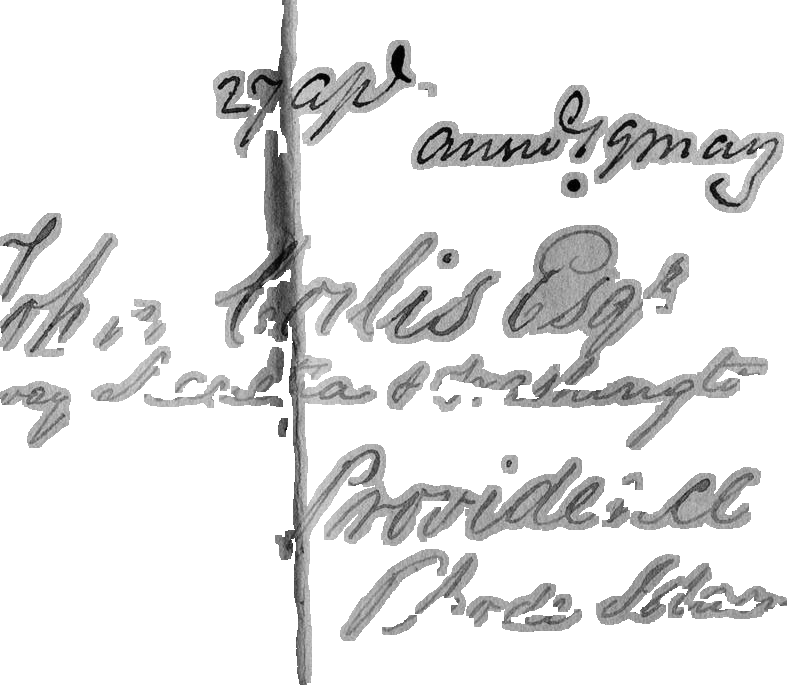 27 apl
9 may
John Corlis Esqr
& Washingto
Providence
Rhode Islan